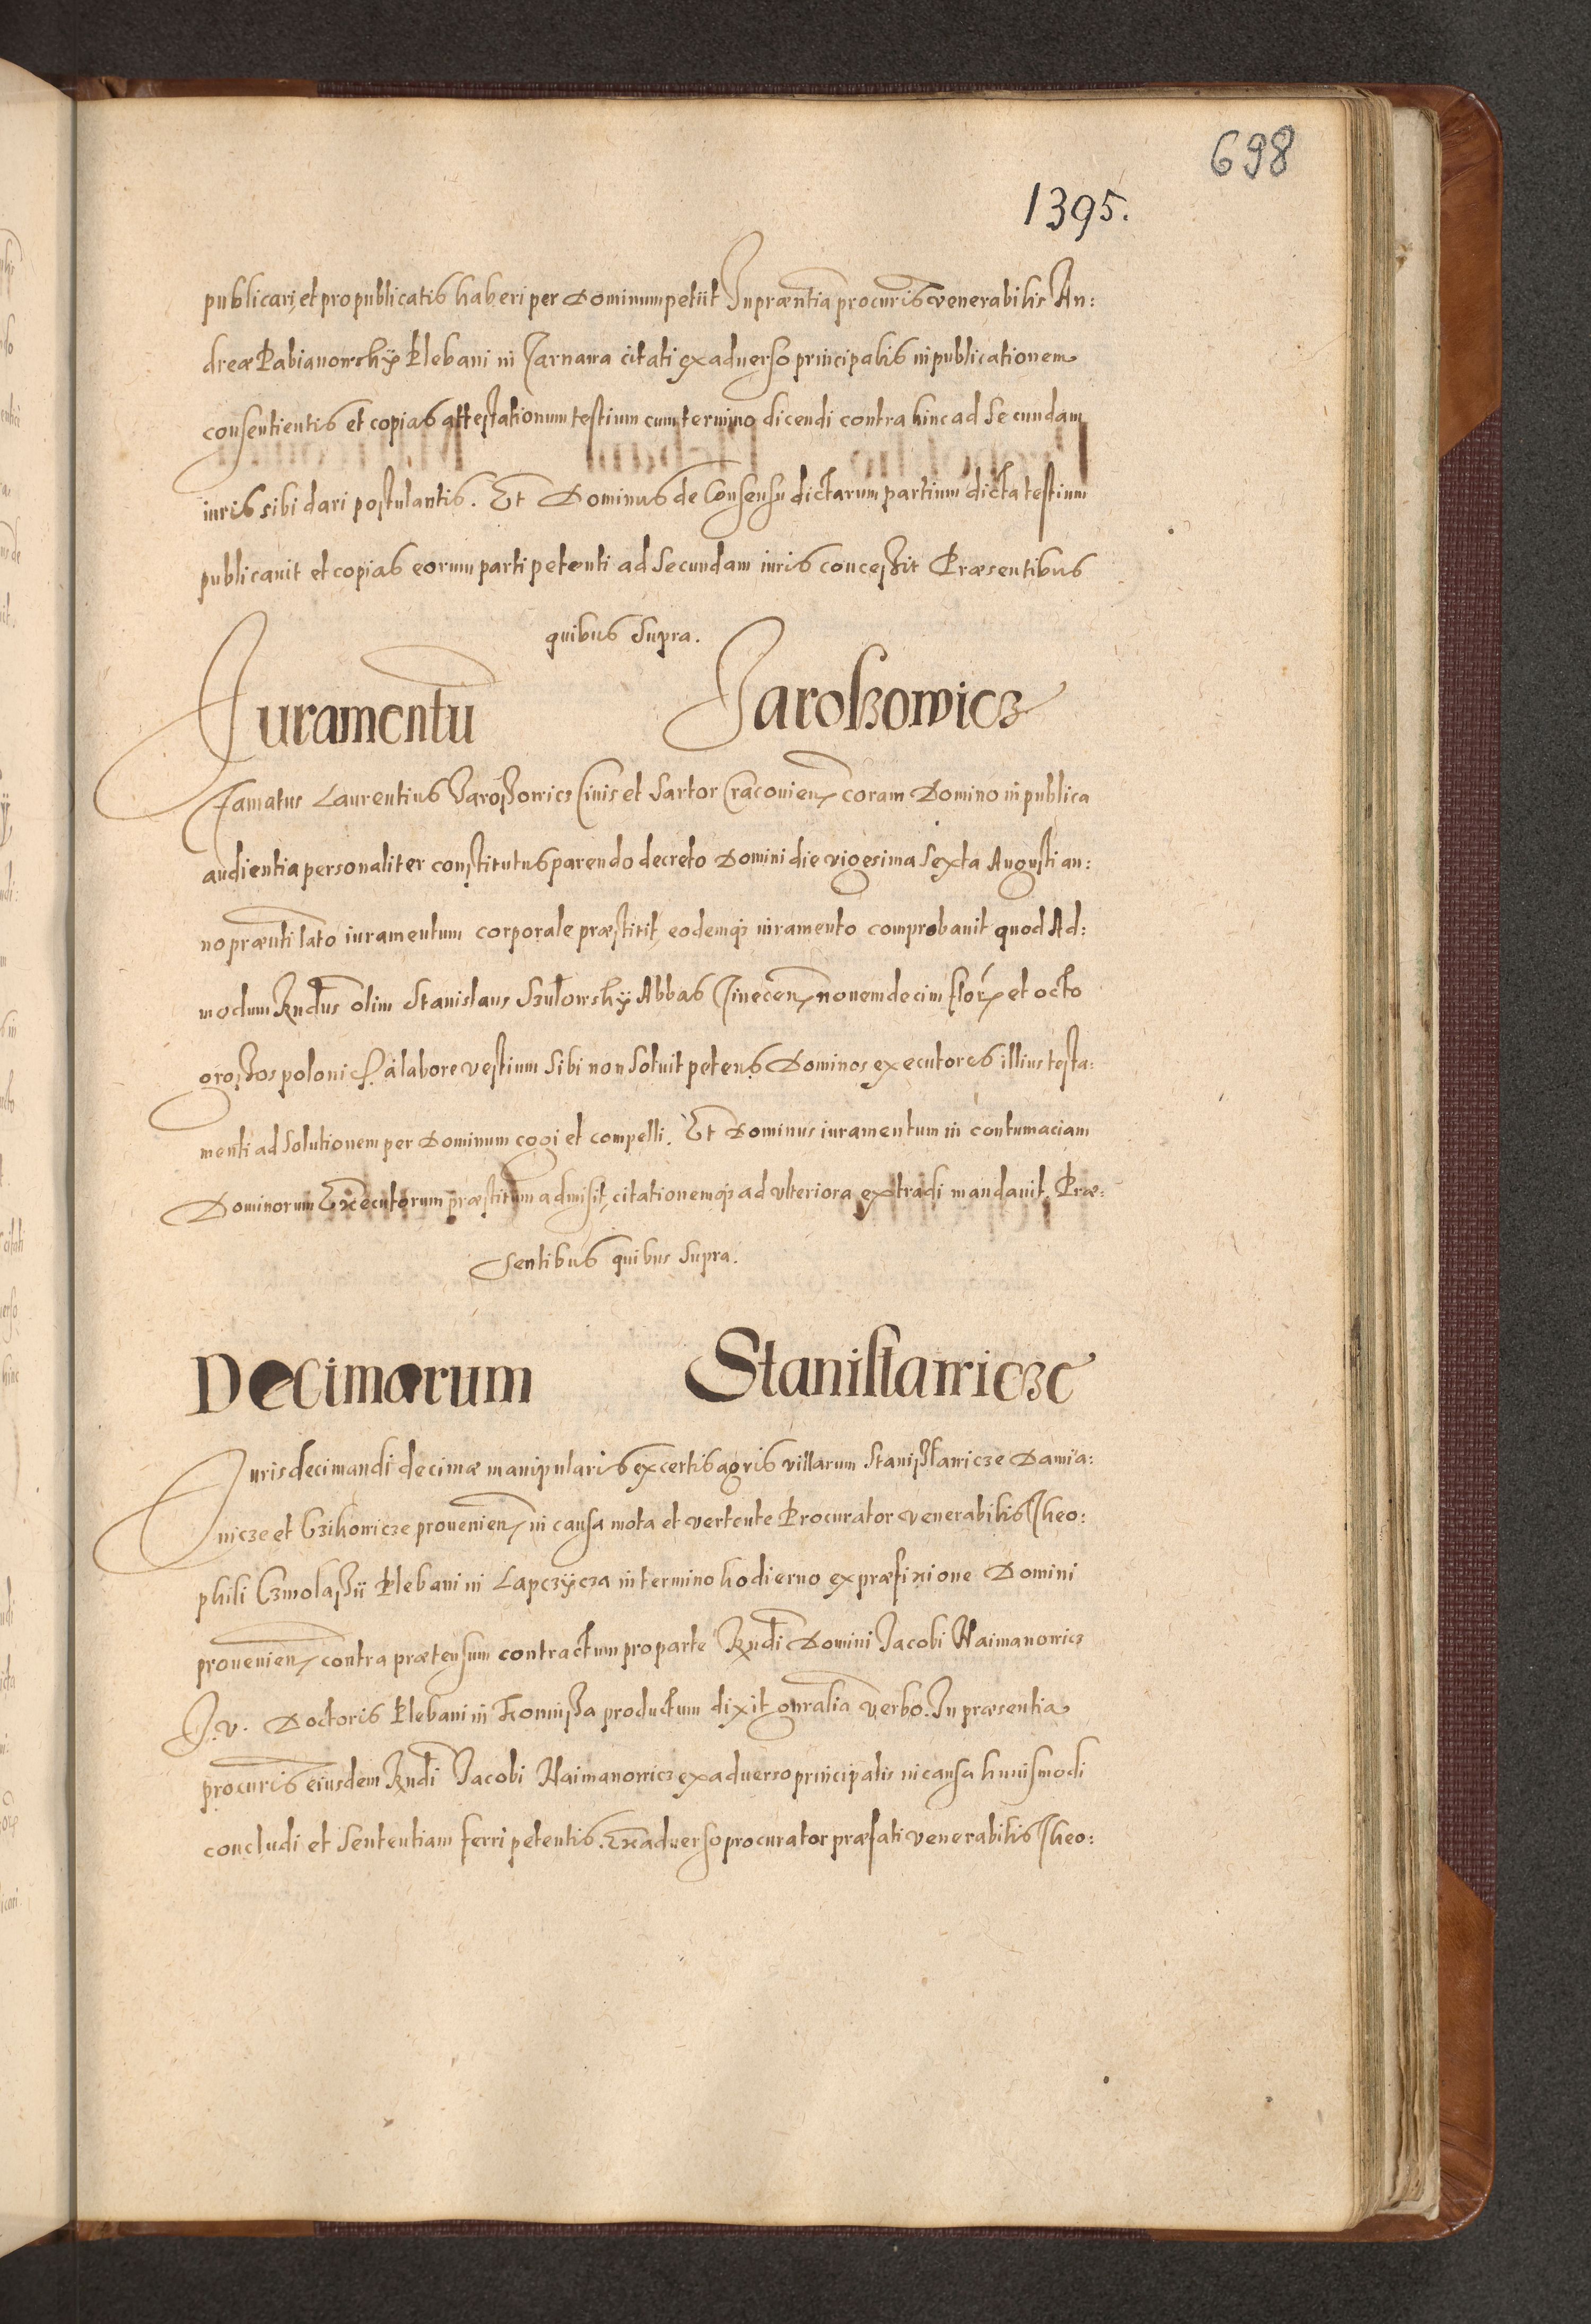 698
1395.
publicari, et pro publicatis haberi per Dominum petiit In præntia procuris venerabilis An:
dreæ Pabianowsky Plebani in Tarnawa citati ex aduerso principalis in publicationem
consentientis et copias attestationum testium cum termino dicendi contra hinc ad Secundam
iuris sibi dari postulantis. Et Dominus de Consensu dictarum partium dicta testium
publicauit et copias eorum parti petenti ad Secundam iuris concessit Præsentibus
quibus Supra.
Juramentū Jaroszowicz
Famatus Laurentius Jaroszowicz Ciuis et Sartor Cracouien coram Domino in publica
audientia personaliter constitutus parendo decreto Domini die vigesima Sexta Augusti an:
no prænti lato iuramentum corporale præstitit, eodemq; iuramento comprobauit quod Ad:
modum Rndus olim Stanislaus Szulowsky Abbas Tinecen nouemdecim flor et octo
grossos polonic à labore vestium Sibi non Soluit petens Dominos executores illius testa:
menti ad Solutionem per Dominum cogi et compelli. Et Dominus iuramentum in contumaciam
Dominorum Executorum præstitum admisit, citationemq; ad vlteriora extradi mandauit. Præ:
sentibus quibus Supra.
Decimarum Stanislawicze
Juris decimandi decimæ manipularis ex certis agris villarum Staniszlawicze Damia:
nicze et Czikowicze prouenien in causa mota et vertente Procurator venerabilis Theo:
phili Czmolaszii Plebani in Lapczycza in termino hodierno ex præfixione Domini
prouenien contra prætensum contractum pro parte Rndi Domini Jacobi Naimanowicz
J. V. Doctoris Plebani in productum dixit gnralia verbo. In præsentia
procuris eiusdem Rndi Jacobi Naimanowicz ex aduerso principalis in causa huiusmodi
concludi et Sententiam ferri petentis. Ex aduerso procurator præfati venerabilis Theo: